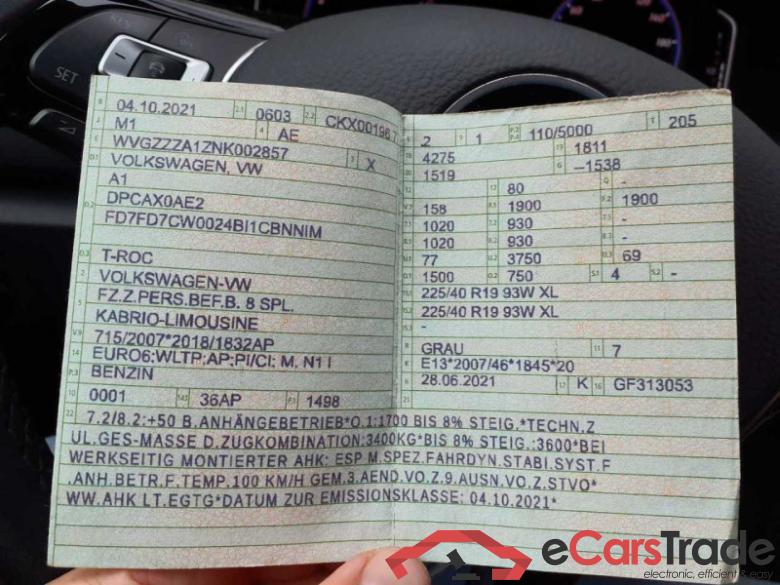 SET
B 04.10.2021 2.1 0603 2.2 CKX00196 7
J M1 4 AE
E WVGZZZA1ZNK002857 3 X
D.1 VOLKSWAGEN, VW
A1
D.2 DPCAX0AE2
FD7FD7CW0024BI1CBNNIM
D.3 T-ROC
2 VOLKSWAGEN-VW
5 FZ.Z.PERS.BEF.B. 8 SPL.
KABRIO-LIMOUSINE
V.9 715/2007*2018/1832AP
14 EURO6:WLTP;AP;PI/CI; M, N1 I
P.3 BENZIN
10 0001 14.1 36AP P.1 1498
2 1 110/5000 T 205
4275 19 1811
1519 G –1538
12 80 Q -
158 1900 F.2 1900
1020 930 -
1020 930 -
77 3750 69
O.1 1500 O.2 750 S.1 4 S.2 -
225/40 R19 93W XL
225/40 R19 93W XL
-
R GRAU 11 7
K E13*2007/46*1845*20
6 28.06.2021 17 K 16 GF313053
21
22 7.2/8.2:+50 B.ANHÄNGEBETRIEB*O.1:1700 BIS 8% STEIG.*TECHN.Z
UL.GES-MASSE D.ZUGKOMBINATION:3400KG*BIS 8% STEIG.:3600*BEI
WERKSEITIG MONTIERTER AHK: ESP M.SPEZ.FAHRDYN.STABI.SYST.F
.ANH.BETR.F.TEMP.100 KM/H GEM.3.AEND.VO.Z.9.AUSN.VO.Z.STVO*
WW.AHK LT.EGTG*DATUM ZUR EMISSIONSKLASSE: 04.10.2021*
eCarsTrade
electronic, efficient & easy